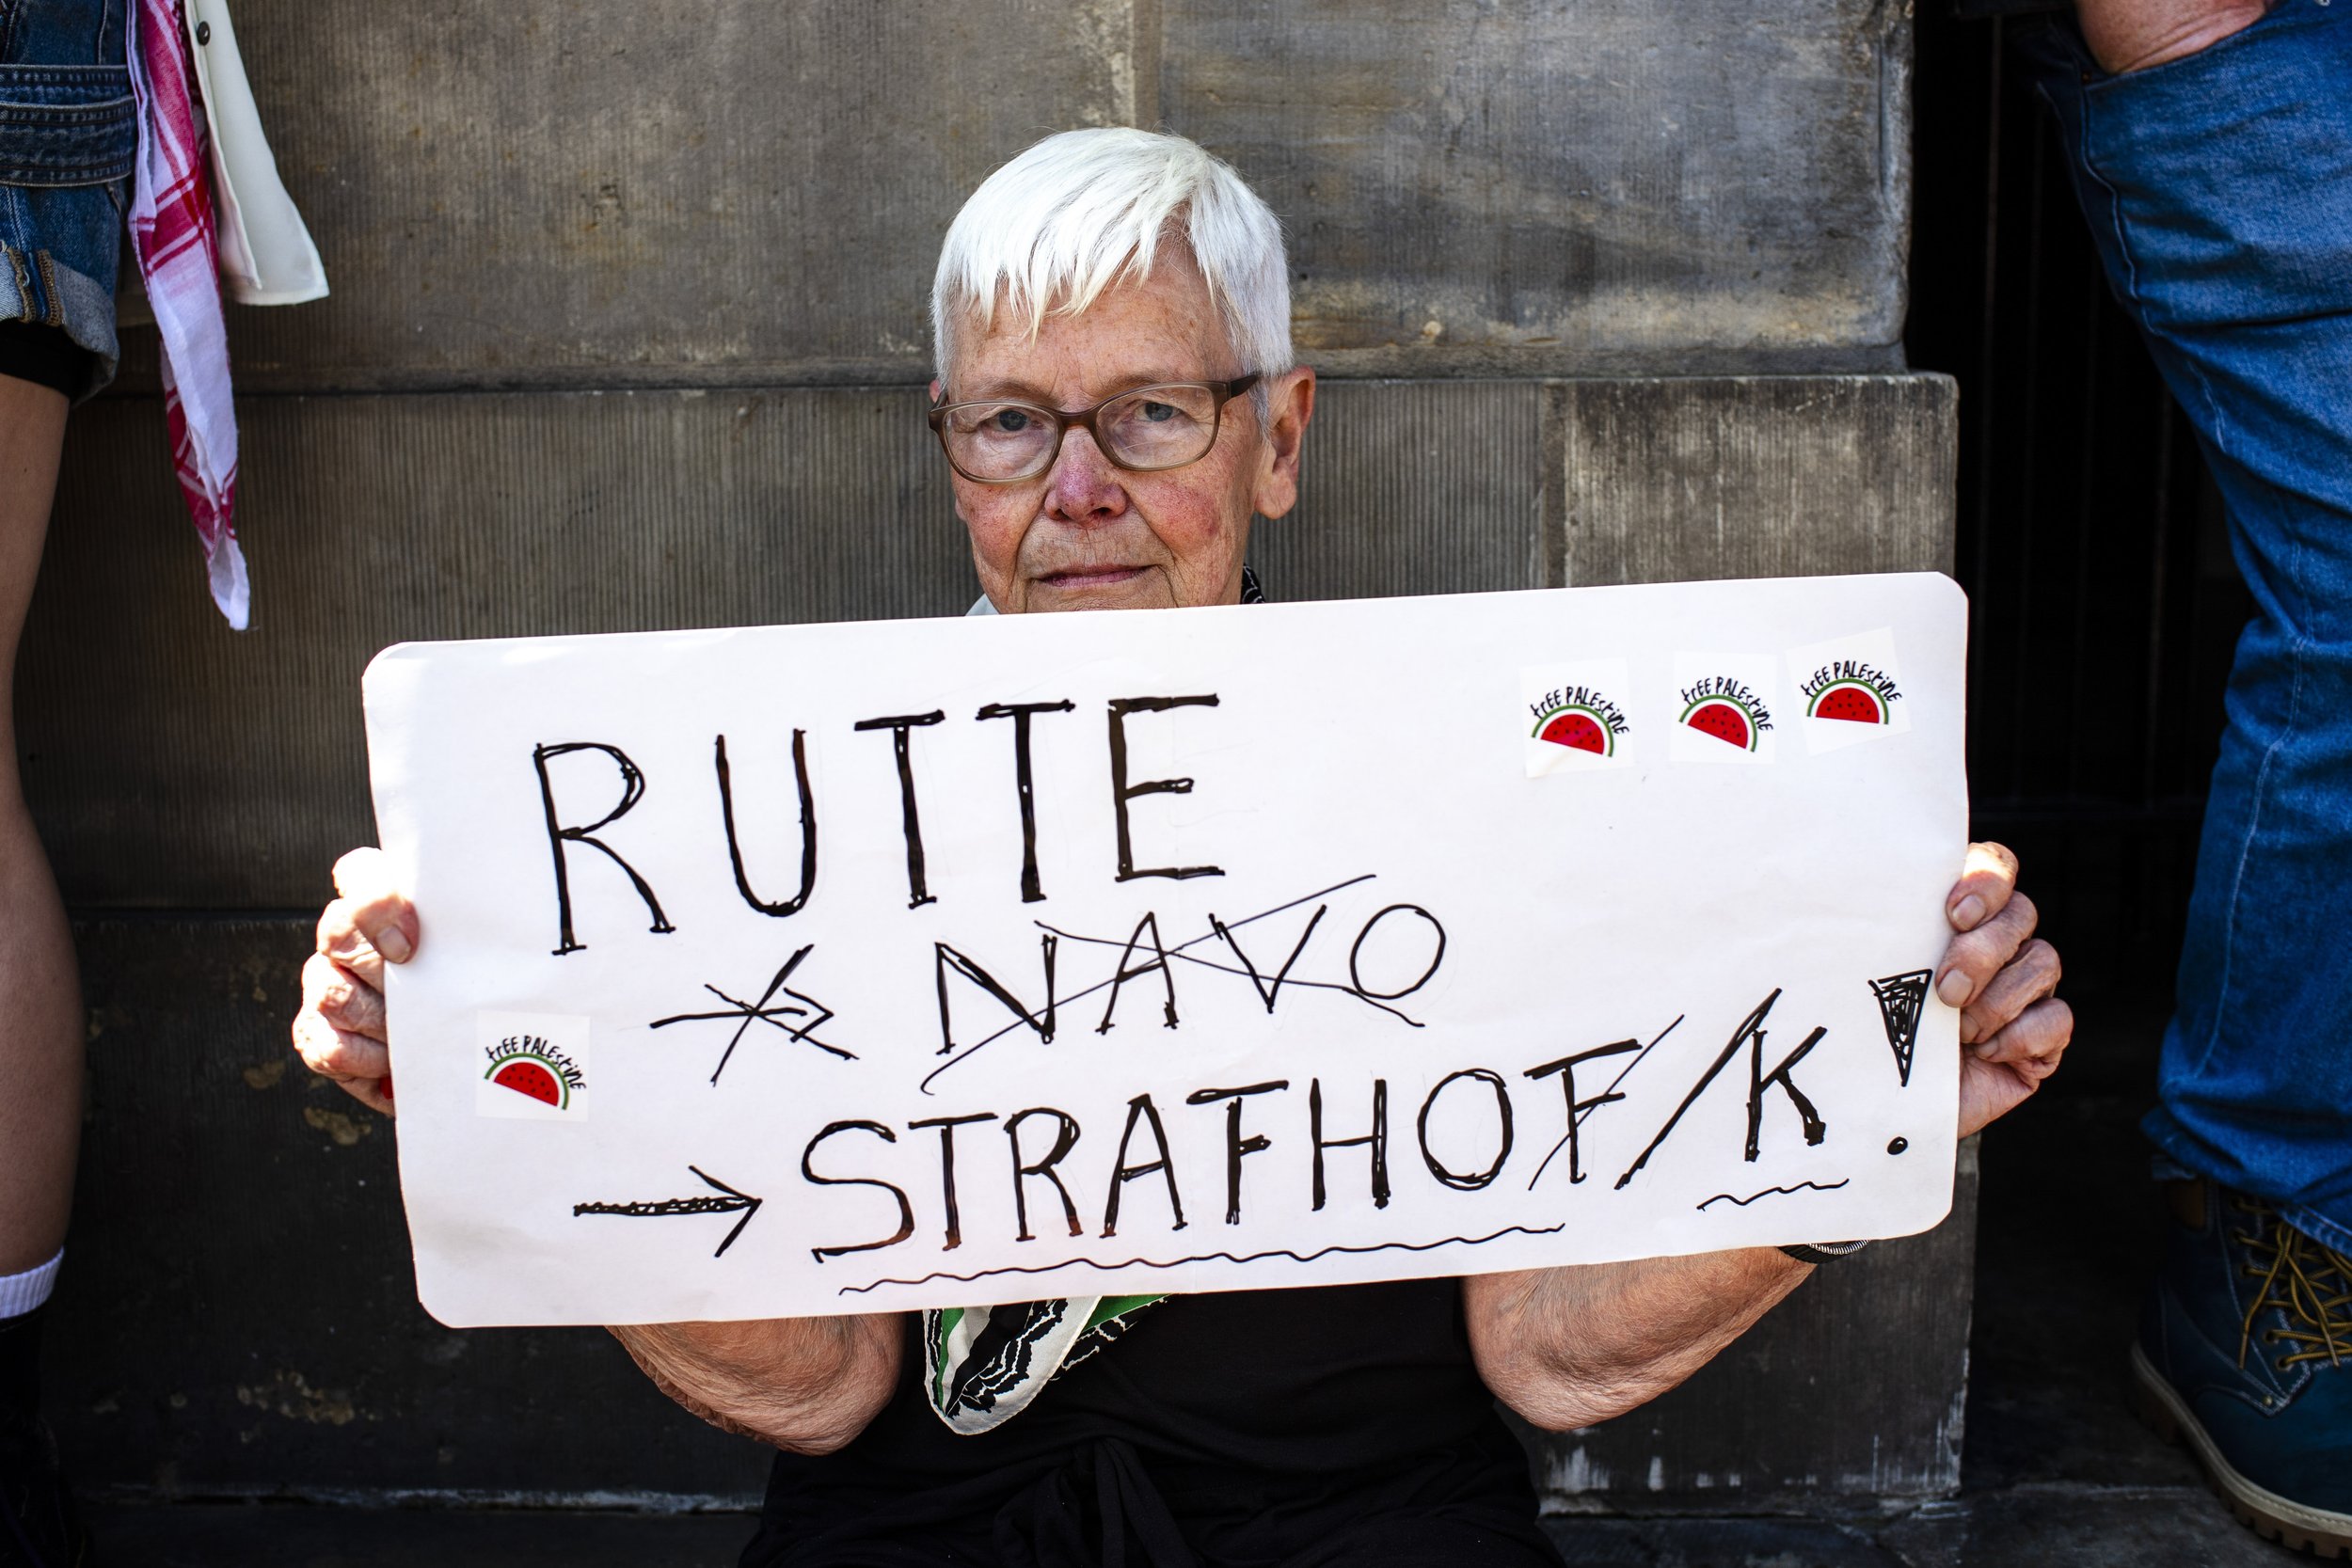 RUTTE
NAVO
→ STRAFHOF/K!
fREE PALEstiNE
fREE PALEstiNE
fREE PALEstiNE
fREE PALEstiNE